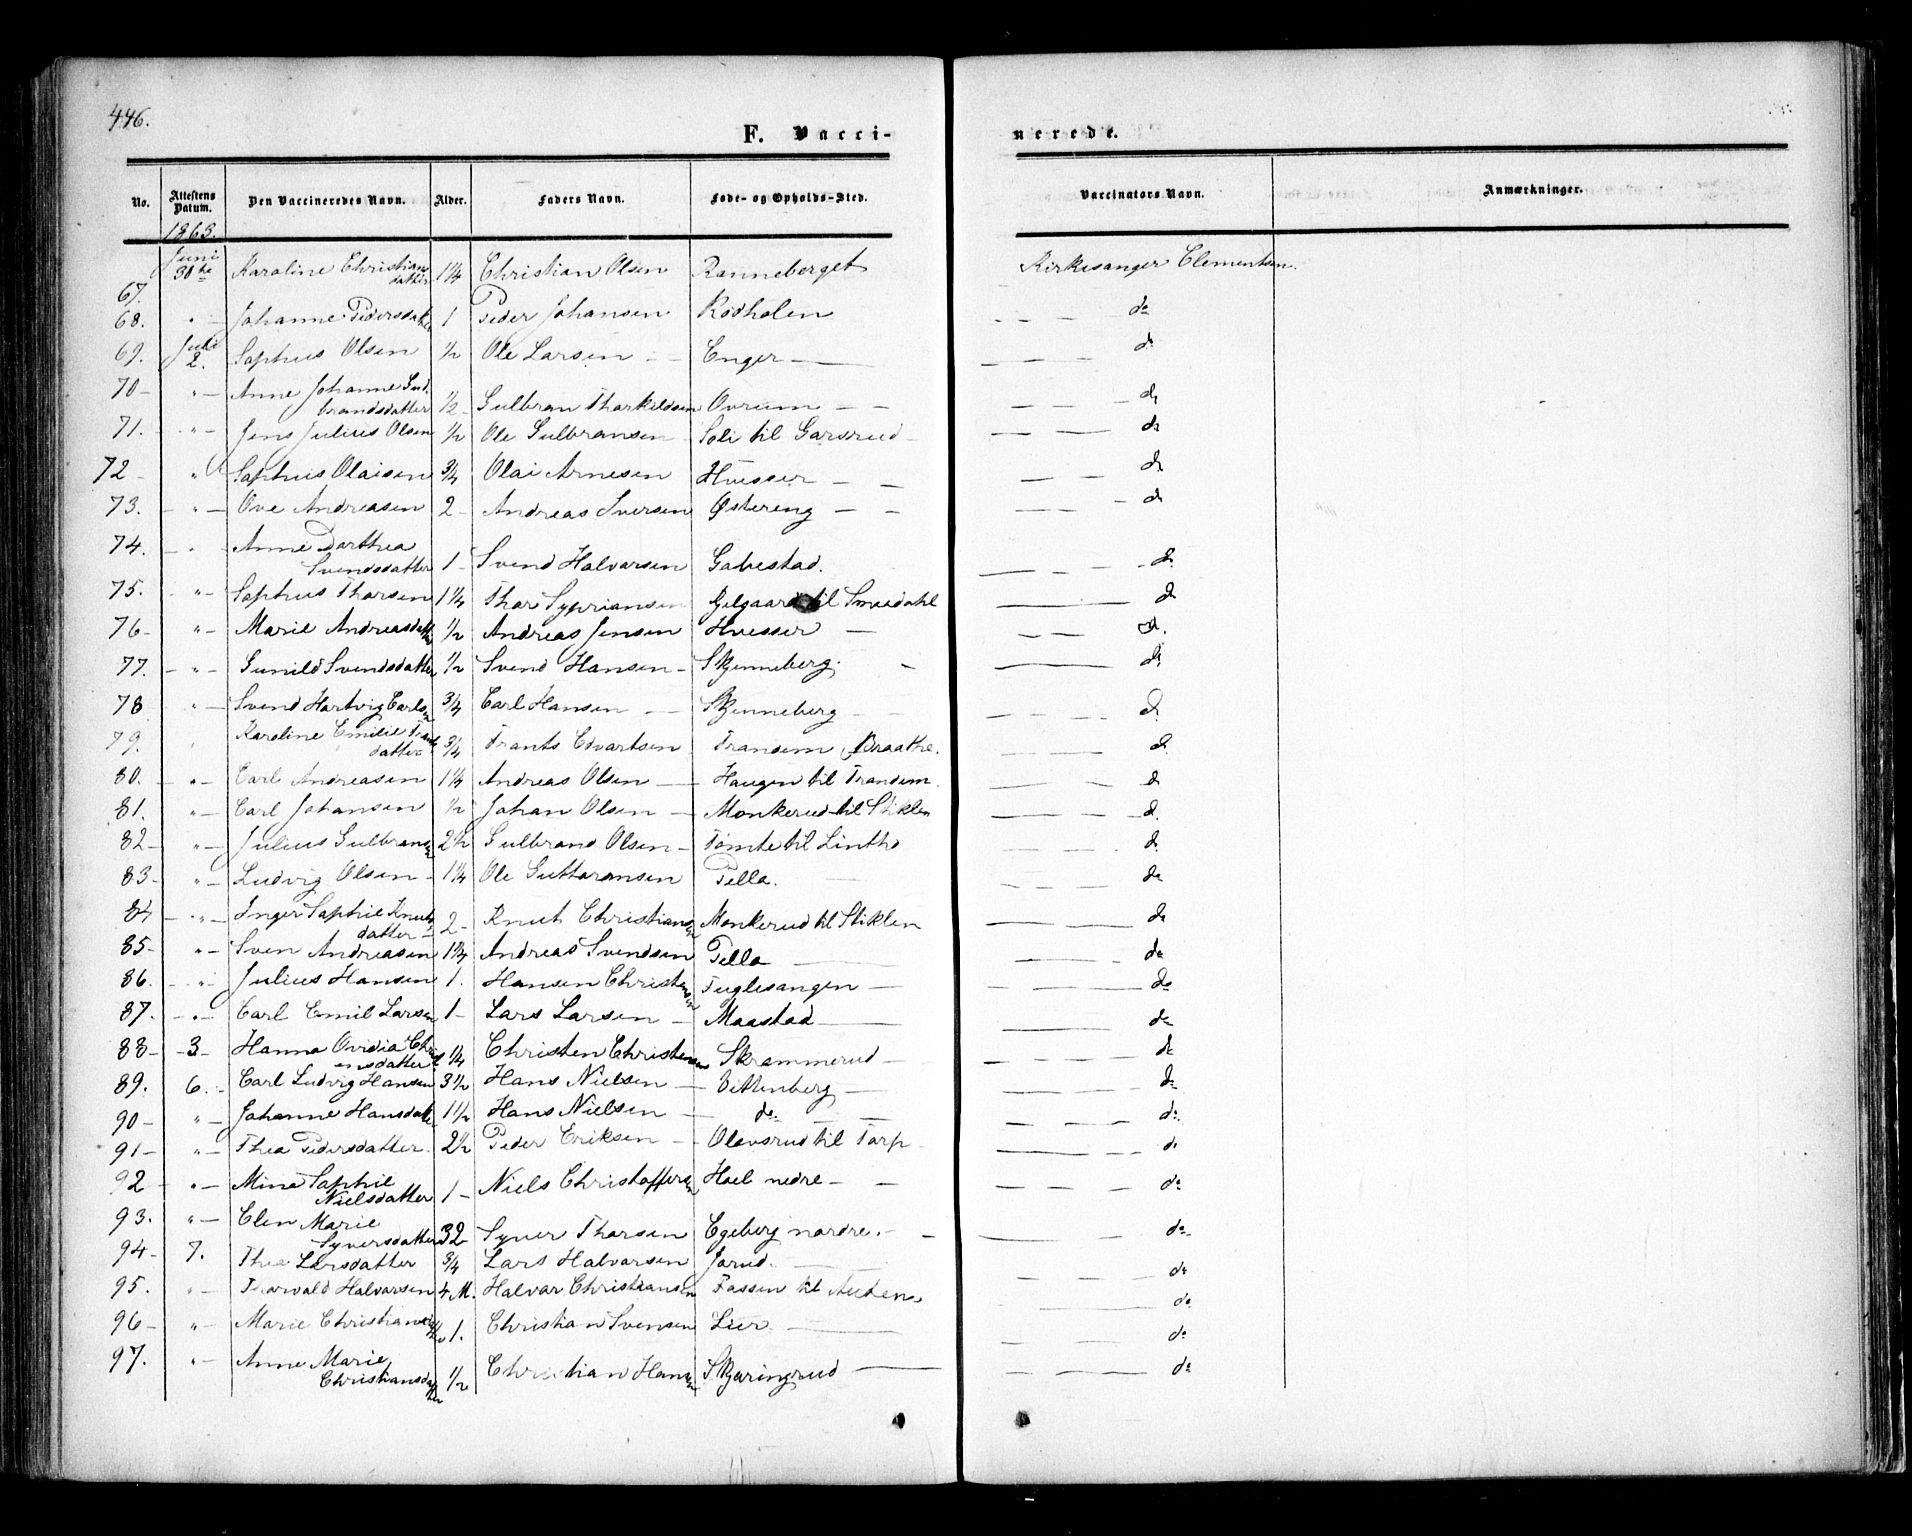 446.
F. Vacci-
nerede.
No. Attestens Datum. Den Vaccineredes Navn. Alder. Faders Navn. Føde- og Opholds-Sted. Vaccinators Navn. Anmærkninger.
1863.
67. Juni 30te Karoline Christians datter 1 1/4 Christian Olsen Ranneberget Kirkesanger Clementsen.
68. " — Johanne Pedersdatter 1 Peder Johansen Rodholen — — — do
69. Juli 2. Sophus Olsen 1/2 Ole Larsen — Enger — — — — do
70 — " — Anne Johanne Gud. brandsdatter 1/2 — Gulbran Tharkildsen Ovrum — — — — — do
71. — " — Jens Julius Olsen 1/2 Ole Gulbransen — Soli til Garsrud — — — — do
72 — " Sophus Olaisen 3/4 Olai Arnesen Hvesser — — — — — do
73. — " — Ove Andreasen 2 — Andreas Iversen Østereng — — — — — do
74. — " Anne Dorthea Svendsdatter 1 — Svend Halvorsen Gabestad. — — — do
75. — " — Sophus Thorsen 1 1/4 Thor Sypriansen til Smedahl — — — do
76 — " — Marie Andreasdatter 1/2 Andreas Jensen Hvesser — — — — do.
77. — " — Gunild Svendsdatter 1/2 Svend Hansen — Skjenneberg. — — — do
78 " — Svend Hartvig Carlsen 3/4 Carl Hansen — Skjenneberg — — — — do
79. " Karoline Emilie datter 3/4 Frants Edvartsen Transem Braathe. — — — do
80. — " — Carl Andreasen 1 1/4 Andreas Olsen — Haugen til Transem. — — — do
81. " — Carl Johansen 1/2 Johan Olsen — Monkerud til Stiklen — — — do.
82 — " — Julius Gulbransen 2 1/2 Gulbrand Olsen — Tomte til Lintho — — — do.
83 — " — Ludvig Olsen — 1 1/4 Ole Guttoransen Pella. — — — do
84 — " — Inger Sophie Knuts datter 2 — Knut Christiansen Monkerud til Stiklen — — — do
85 — " — Sven Andreasen 1 3/4 Andreas Svendsen Pella — — — do
86. — " Julius Hansen 1. Hansen Christensen Fuglesangen — — — — do
87. — " — Carl Emil Larsen 1 — Lars Larsen — Maastad — — — — do
88 — 3 — Hanna Ovidia Christ ensdatter 1/4 Christen Christensen Skrammerud — — — — do
89. 6. — Carl Ludvig Hansen 3 1/2 Hans Nielsen — Vittenberg — — — — do
90 — " — Johanne Hansdatter 1 1/2 Hans Nielsen — do — — — — do
91 — " — Thea Pedersdatter. 2 1/2 Peder Eriksen — Olavsrud til Torp — — — do
92 — " — Mina Sophie Nielsdatter 1 — Niels Christoffersen Hoel nedre — — — — do
93. " — Elen Marie Syversdatter 32 — Syver Thorsen Egeberg nordre. — — — do
94 — 7. Thea Larsdatter 3/4 Lars Halvorsen Jorud. — — — do
95. " — Thorvald Halvorsen 4 M. Halvor Christiansen Fossen til Auden. — — — do
96 — " — Marie Christiansdatter 1. Christian Svensen Lier — — — — do
97. " — Anne Marie Christiansdatter 1/2 Christian Hansen Skjøringrud — — — — do